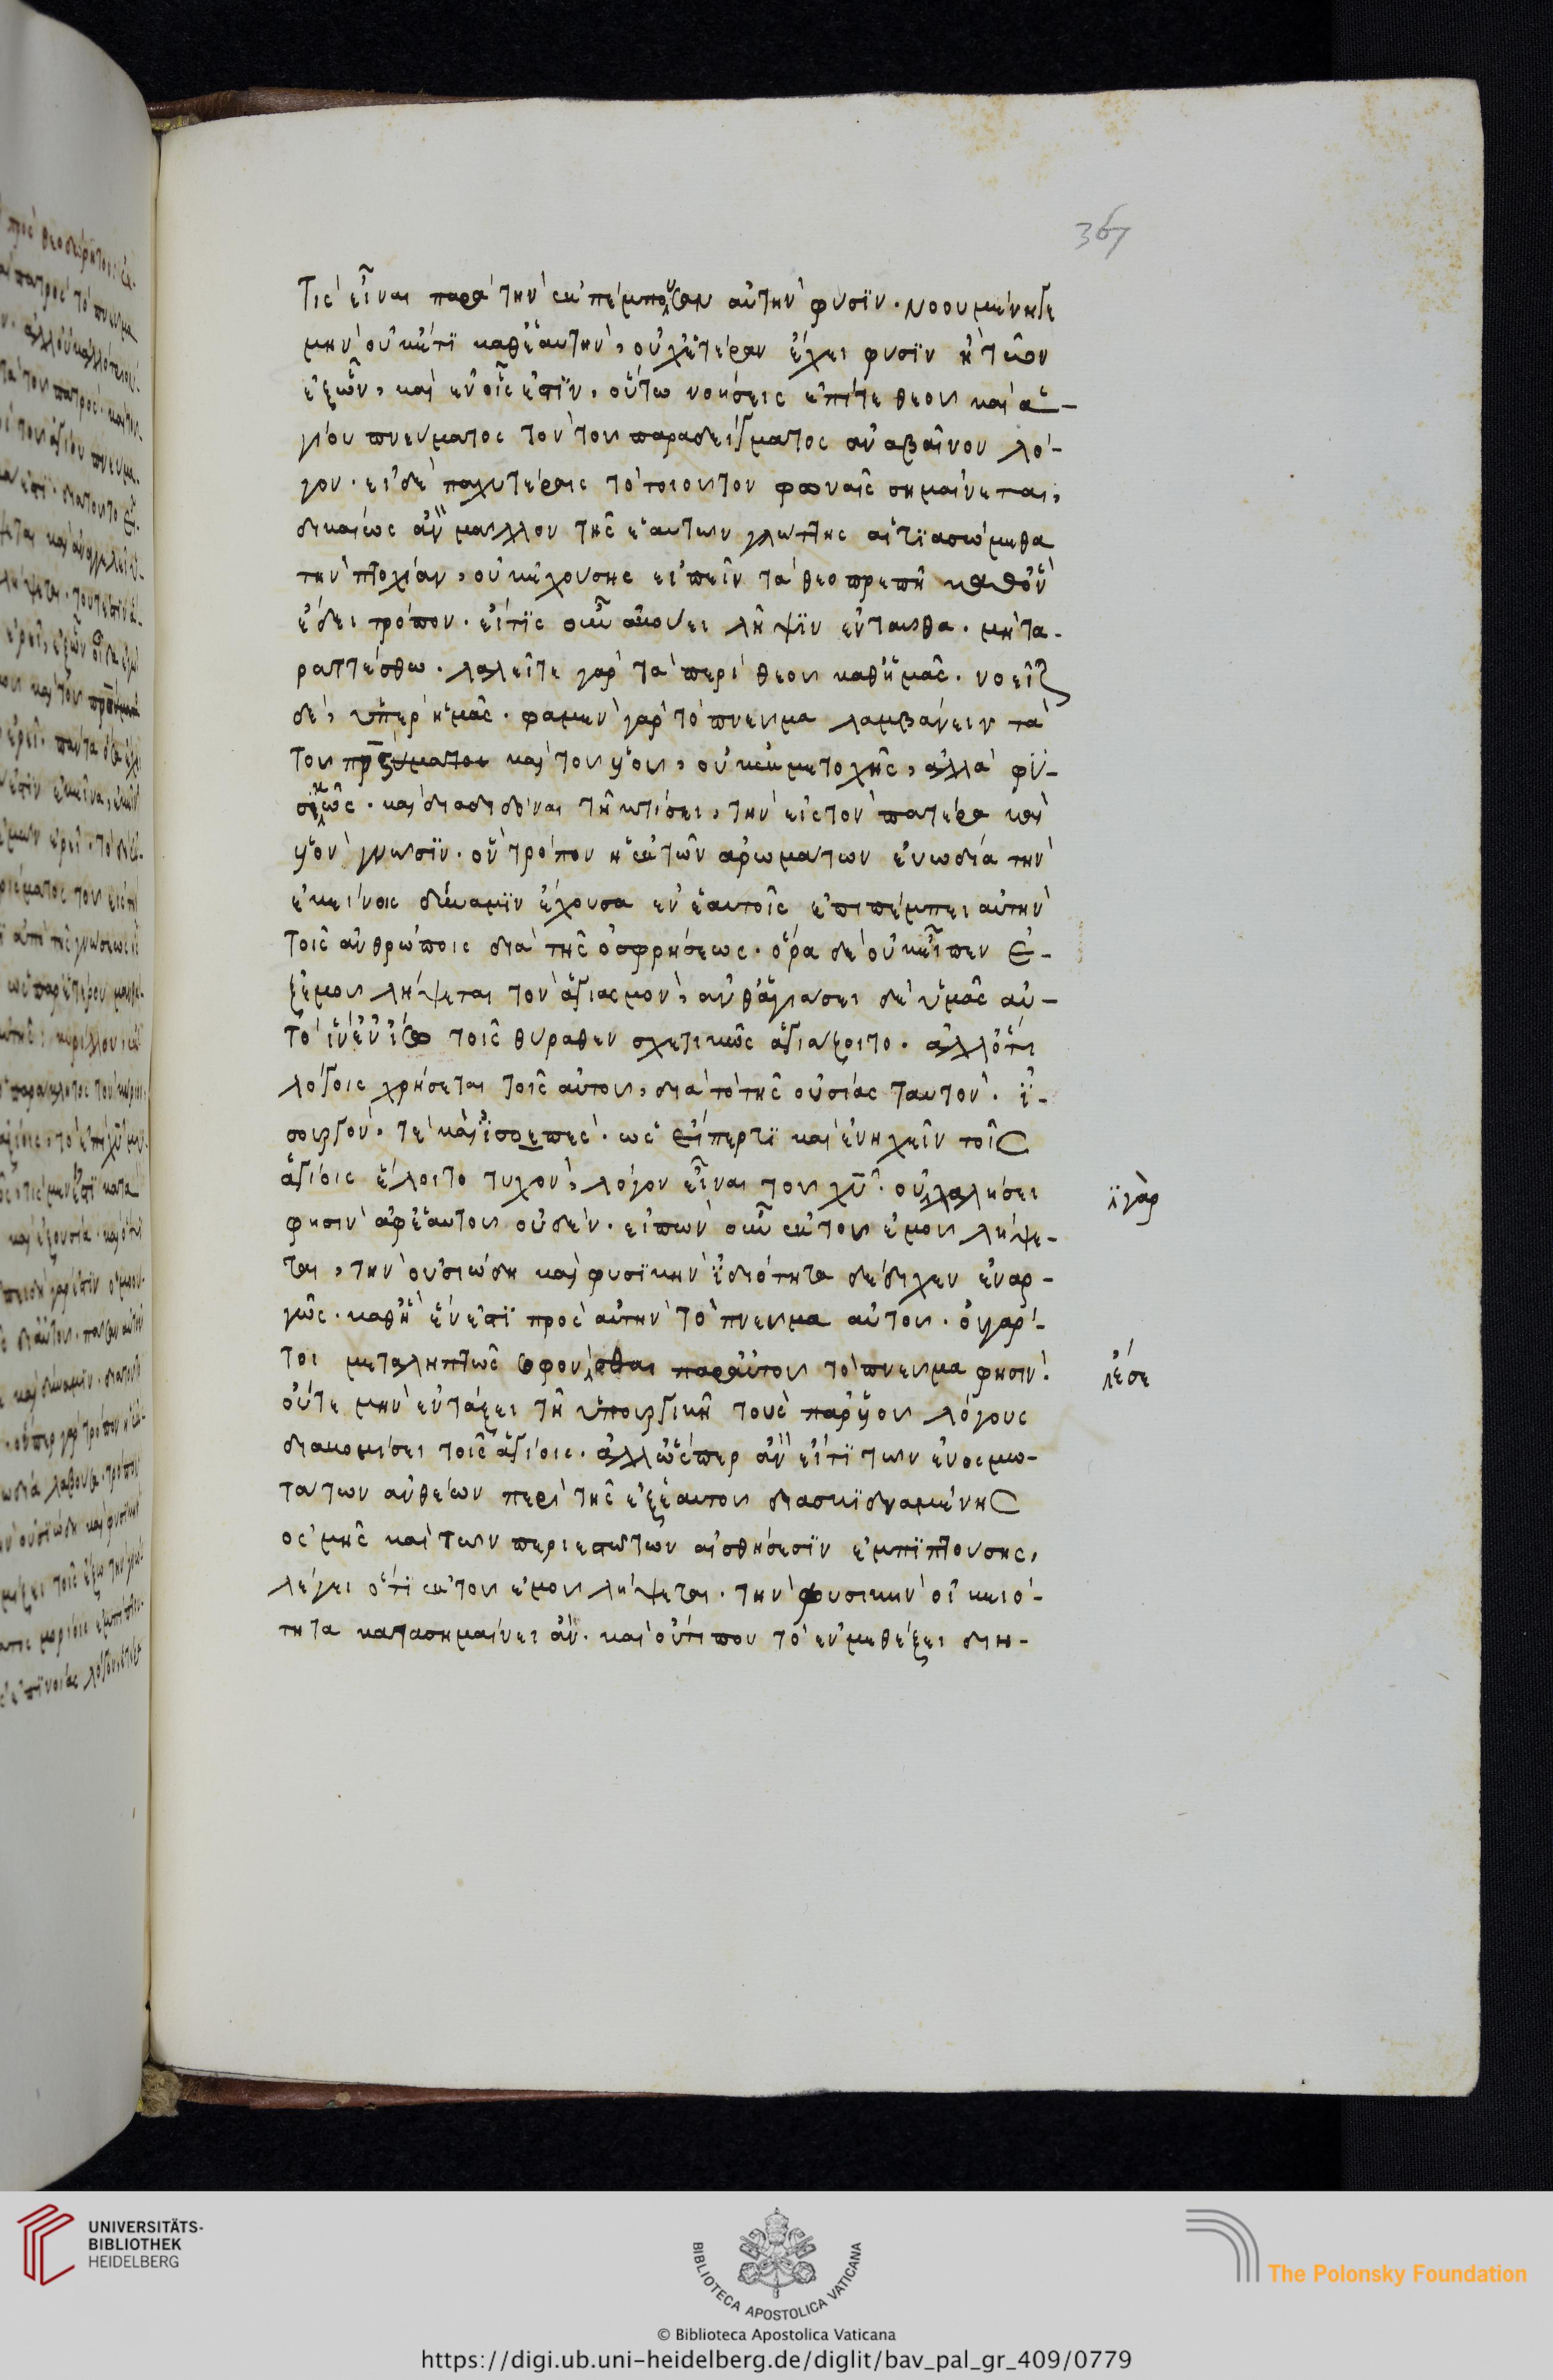 367
τις εἶναι παρὰ τὴν ἐκπέμπουσαν αὐτὴν φύσϊν. νοουμένη δε
μὴν οὐκέτϊ καθ ἑαυτὴν, οὐχ ἑτέραν ἔχει φύσϊν ἢ τῶν
ἐξ ὧν, καὶ ἐν οἷς ἐστϊν, οὕτω νοήσεις ἐπί τε θεοῦ καὶ ἁ-
γίου πνεύματος τὸν τοῦ παραδείγματος ἀναβαίνον λό-
γον. εἰ δὲ παχυτέραις τὸ τοιοῦτον φωναῖς σημαίνεται,
δικαίως ἂν μᾶλλον τῆς ἑαυτῶν γλώττης αἰτϊασώμεθα
τὴν πτοχίαν, οὐκ ἐχούσης εἰπεῖν τὰ θεοπρεπῆ καθ ὃν
ἔδει τρόπον. εἴ τϊς οὖν ἀκούει λῆψϊν ἐνταῦθα. μὴ τα-
ραττέσθω. λαλεῖτε γὰρ τὰ περὶ θεοῦ καθ ἡμᾶς. νοεῖται
δὲ, ὑπὲρ ἡμᾶς. φαμὲν γὰρ τὸ πνεῦμα λαμβάνειν τὰ
τοῦ πρς υματος καὶ τοῦ υἱοῦ, οὐκ ἐκ μετοχῆς, ἀλλὰ φυ-
σικῶς. καὶ διαδιδόναι τῇ κτίσει, τὴν εἰς τὸν πατέρα καὶ
υἱὸν γνῶσϊν. ὃν τρόπον ἡ ἐκ τῶν ἀρωμάτων εὐωδία τὴν
ἐκείνοις δύναμϊν ἔχουσα ἐν ἑαυτοῖς ἐπιπέμπει αὐτὴν
τοῖς ἀνθρώποις διὰ τῆς ὀσφρήσεως. ὅρα δὲ οὐκ εἶπεν ἐ-
ξ ἐμοῦ λήψεται τὸν ἁγιασμὸν, ἀνθ ἁγιάσει δὲ ὑμᾶς αὐ-
τὸ ἵν ἐν ἴσῳ τοῖς θύραθεν σχετικῶς ἁγιάζοιτο. ἀλλ ὅτι
λόγοις χρήσεται τοῖς αὐτοῦ, διὰ τὸ τῆς οὐσίας ταυτὸν. ἰ-
σουργόν. τὲ καὶ ϊσοεπὲς. ὡς εἴπερ τϊ καὶ ἐνηχεῖν τοῖς
ἁγίοις ἕλοιτο τυχὸν, λόγον εἶναι τοῦ χῦ. οὐ λαλήσει
ϊ γὰρ
φησὶν ἀφ ἑαυτοῦ οὐδέν. εἰπὼν οὖν ἐκ τοῦ ἐμοῦ λήψε-
ται, τὴν οὐσιώδη καὶ φυσϊκὴν ἰδιότητα δέδιχεν ἐναρ-
γῶς. καθ ἣ ἕν ἐστϊ πρὸς αὐτὴν τὸ πνεῦμα αὐτοῦ. οὐ γάρ-
τοι μεταληπτῶς σοφου σθαι παρ αὐτοῦ τὸ πνεῦμα φησὶν.
λέσε
οὔτε μὴν ἐν τάξει τῇ ὑπουργικῇ τοὺς παρ υἱοῦ λόγους
διακομίσει τοῖς ἁγίοις. ἀλλ ὥσπερ ἂν εἴ τϊ τῶν εὐοσμω-
τάτων ἀνθέων περὶ τῆς ἐξ ἑαυτοῦ διασκϊδναμένης
ὀσμῆς καὶ τῶν περιεστώτων αἰσθήσεσϊν ἐμπϊπτούσης,
λέγει ὅτϊ ἐκ τοῦ ἐμοῦ λήψεται. τὴν φυσικὴν οἰκειό-
τητα κατασημαίνει ἂν. καὶ οὔτι που τὸ ἐν μεθέξει διη-
UNIVERSITÄTS-
BIBLIOTHEK
HEIDELBERG
BIBLIOTECA APOSTOLICA VATICANA
The Polonsky Foundation
© Biblioteca Apostolica Vaticana
https://digi.ub.uni-heidelberg.de/diglit/bav_pal_gr_409/0779